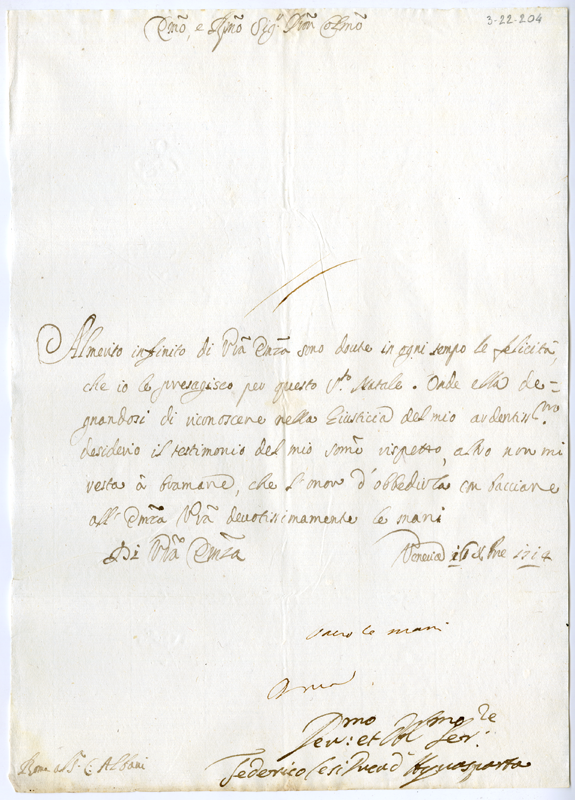 3-22-204
Emo, e Rmo Sigr Pron Colmo
Al merito infinito di Vra Emza sono dovute in ogni tempo le felicità,
che io le presagisco per questo Sto Natale. Onde ella de=
gnandosi di riconoscere nella Giustizia del mio ardentismo
desiderio il testimonio del mio somo rispetto, altro non mi
resta à bramare, che l'onor d'obbedirla con bacciare
all' Emza Vra devotissimamente le mani
Di Vra Emza
Venezia Xbre 1714
bacio le mani
Devmo et Obmo Serre
Federico Cesi Duca d' Acquasparta
Roma al Sr C. Albani